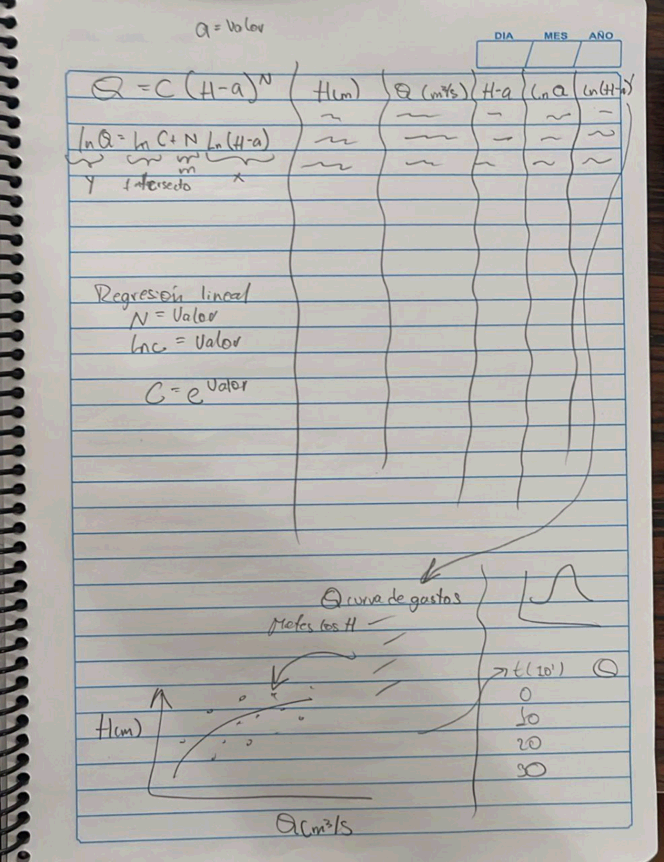 a = Valor
DIA MES AÑO
Q = C (H-a)^N H(m) Q (m³/s) H-a Ln Q Ln(H-a)
ln Q = ln C + N Ln(H-a)
Y Intersecto m x
Regresión lineal
N = Valor
lnc = Valor
C = e^Valor
Q curva de gastos
Metes los H
t(10') Q
0
10
20
30
H(m)
Q(m³/s